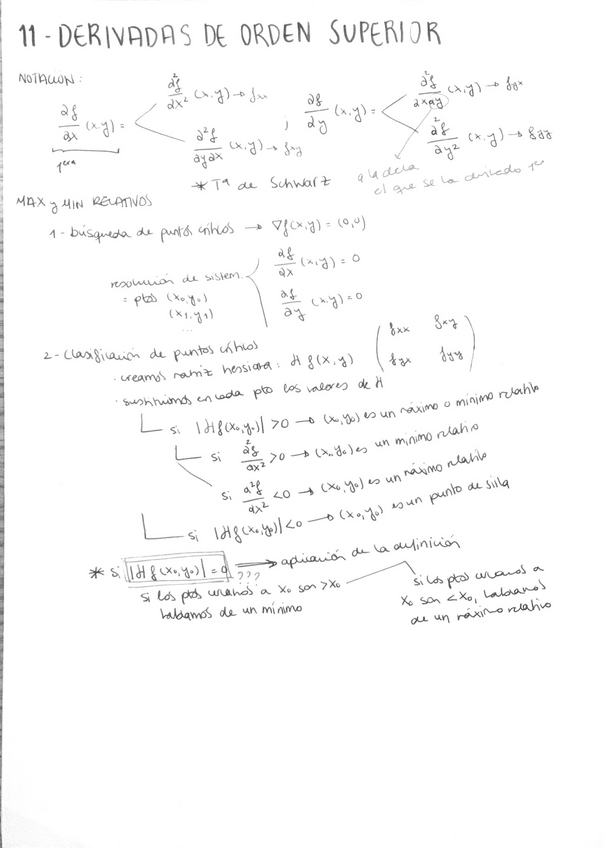 11 - DERIVADAS DE ORDEN SUPERIOR
NOTACION:
∂f/∂x (x,y) = ∂²f/∂x² (x,y) → fxx
∂²f/∂y∂x (x,y) → fxy
1era
; ∂f/∂y (x,y) = ∂²f/∂x∂y (x,y) → fyx
∂²f/∂y² (x,y) → fyy
* Tª de Schwarz
a la dcha
el que se ha derivado 1º
MAX y MIN RELATIVOS
1 - búsqueda de puntos críticos → ∇f(x,y) = (0,0)
resolución de sistem.
= ptos (x₀,y₀)
(x₁,y₁)
...
∂f/∂x (x,y) = 0
∂f/∂y (x,y) = 0
2 - Clasificación de puntos críticos
· creamos matriz hessiana: H f(x,y) (fxx fxy
fyx fyy)
· sustituimos en cada pto los valores de H
si |Hf(x₀,y₀)| > 0 → (x₀,y₀) es un máximo o mínimo relativo
si ∂²f/∂x² > 0 → (x₀,y₀) es un mínimo relativo
si ∂²f/∂x² < 0 → (x₀,y₀) es un máximo relativo
si |Hf(x₀,y₀)| < 0 → (x₀,y₀) es un punto de silla
* si |Hf(x₀,y₀)| = 0 ??? → aplicación de la definición
si los ptos cercanos a x₀ son > x₀
hablamos de un mínimo
si los ptos cercanos a
x₀ son < x₀, hablamos
de un máximo relativo